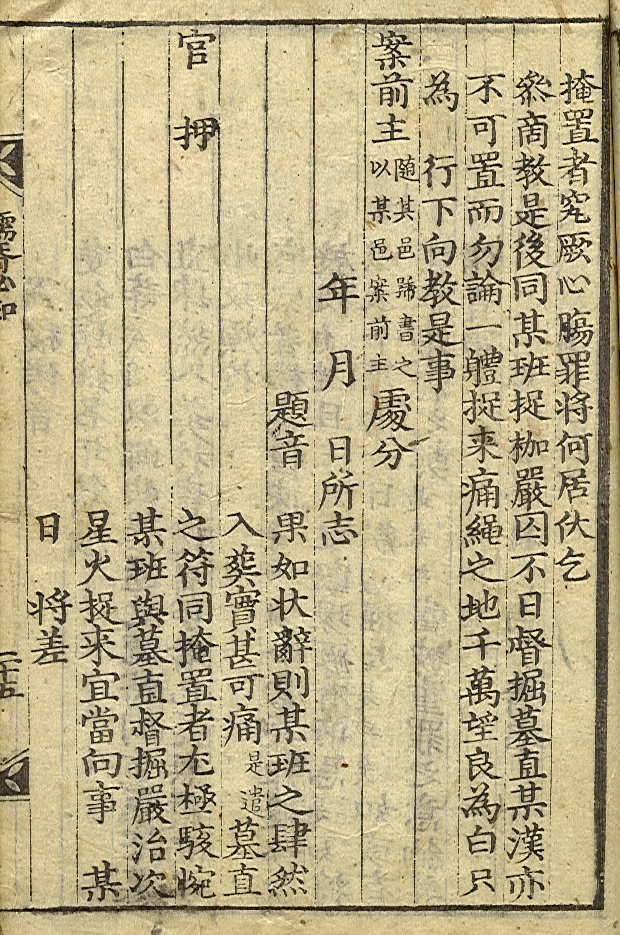 掩置者究厥心膓罪将何居伏乞
叅商教是後同某班捉枷嚴囚不日督掘墓直某漢亦
不可置而勿論一軆捉来痛繩之地千萬望良為白只
為　行下向教是事
案前主 随其邑號書之 以某邑案前主 處分
年　月　日所志
題音　果如状辭則某班之肆然
入葬實甚可痛是遣墓直
官　押　之符同掩置者尤極駭惋
某班與墓直督掘嚴治次
星火捉来宜當向事　某
日　将差
儒胥必知
二十五